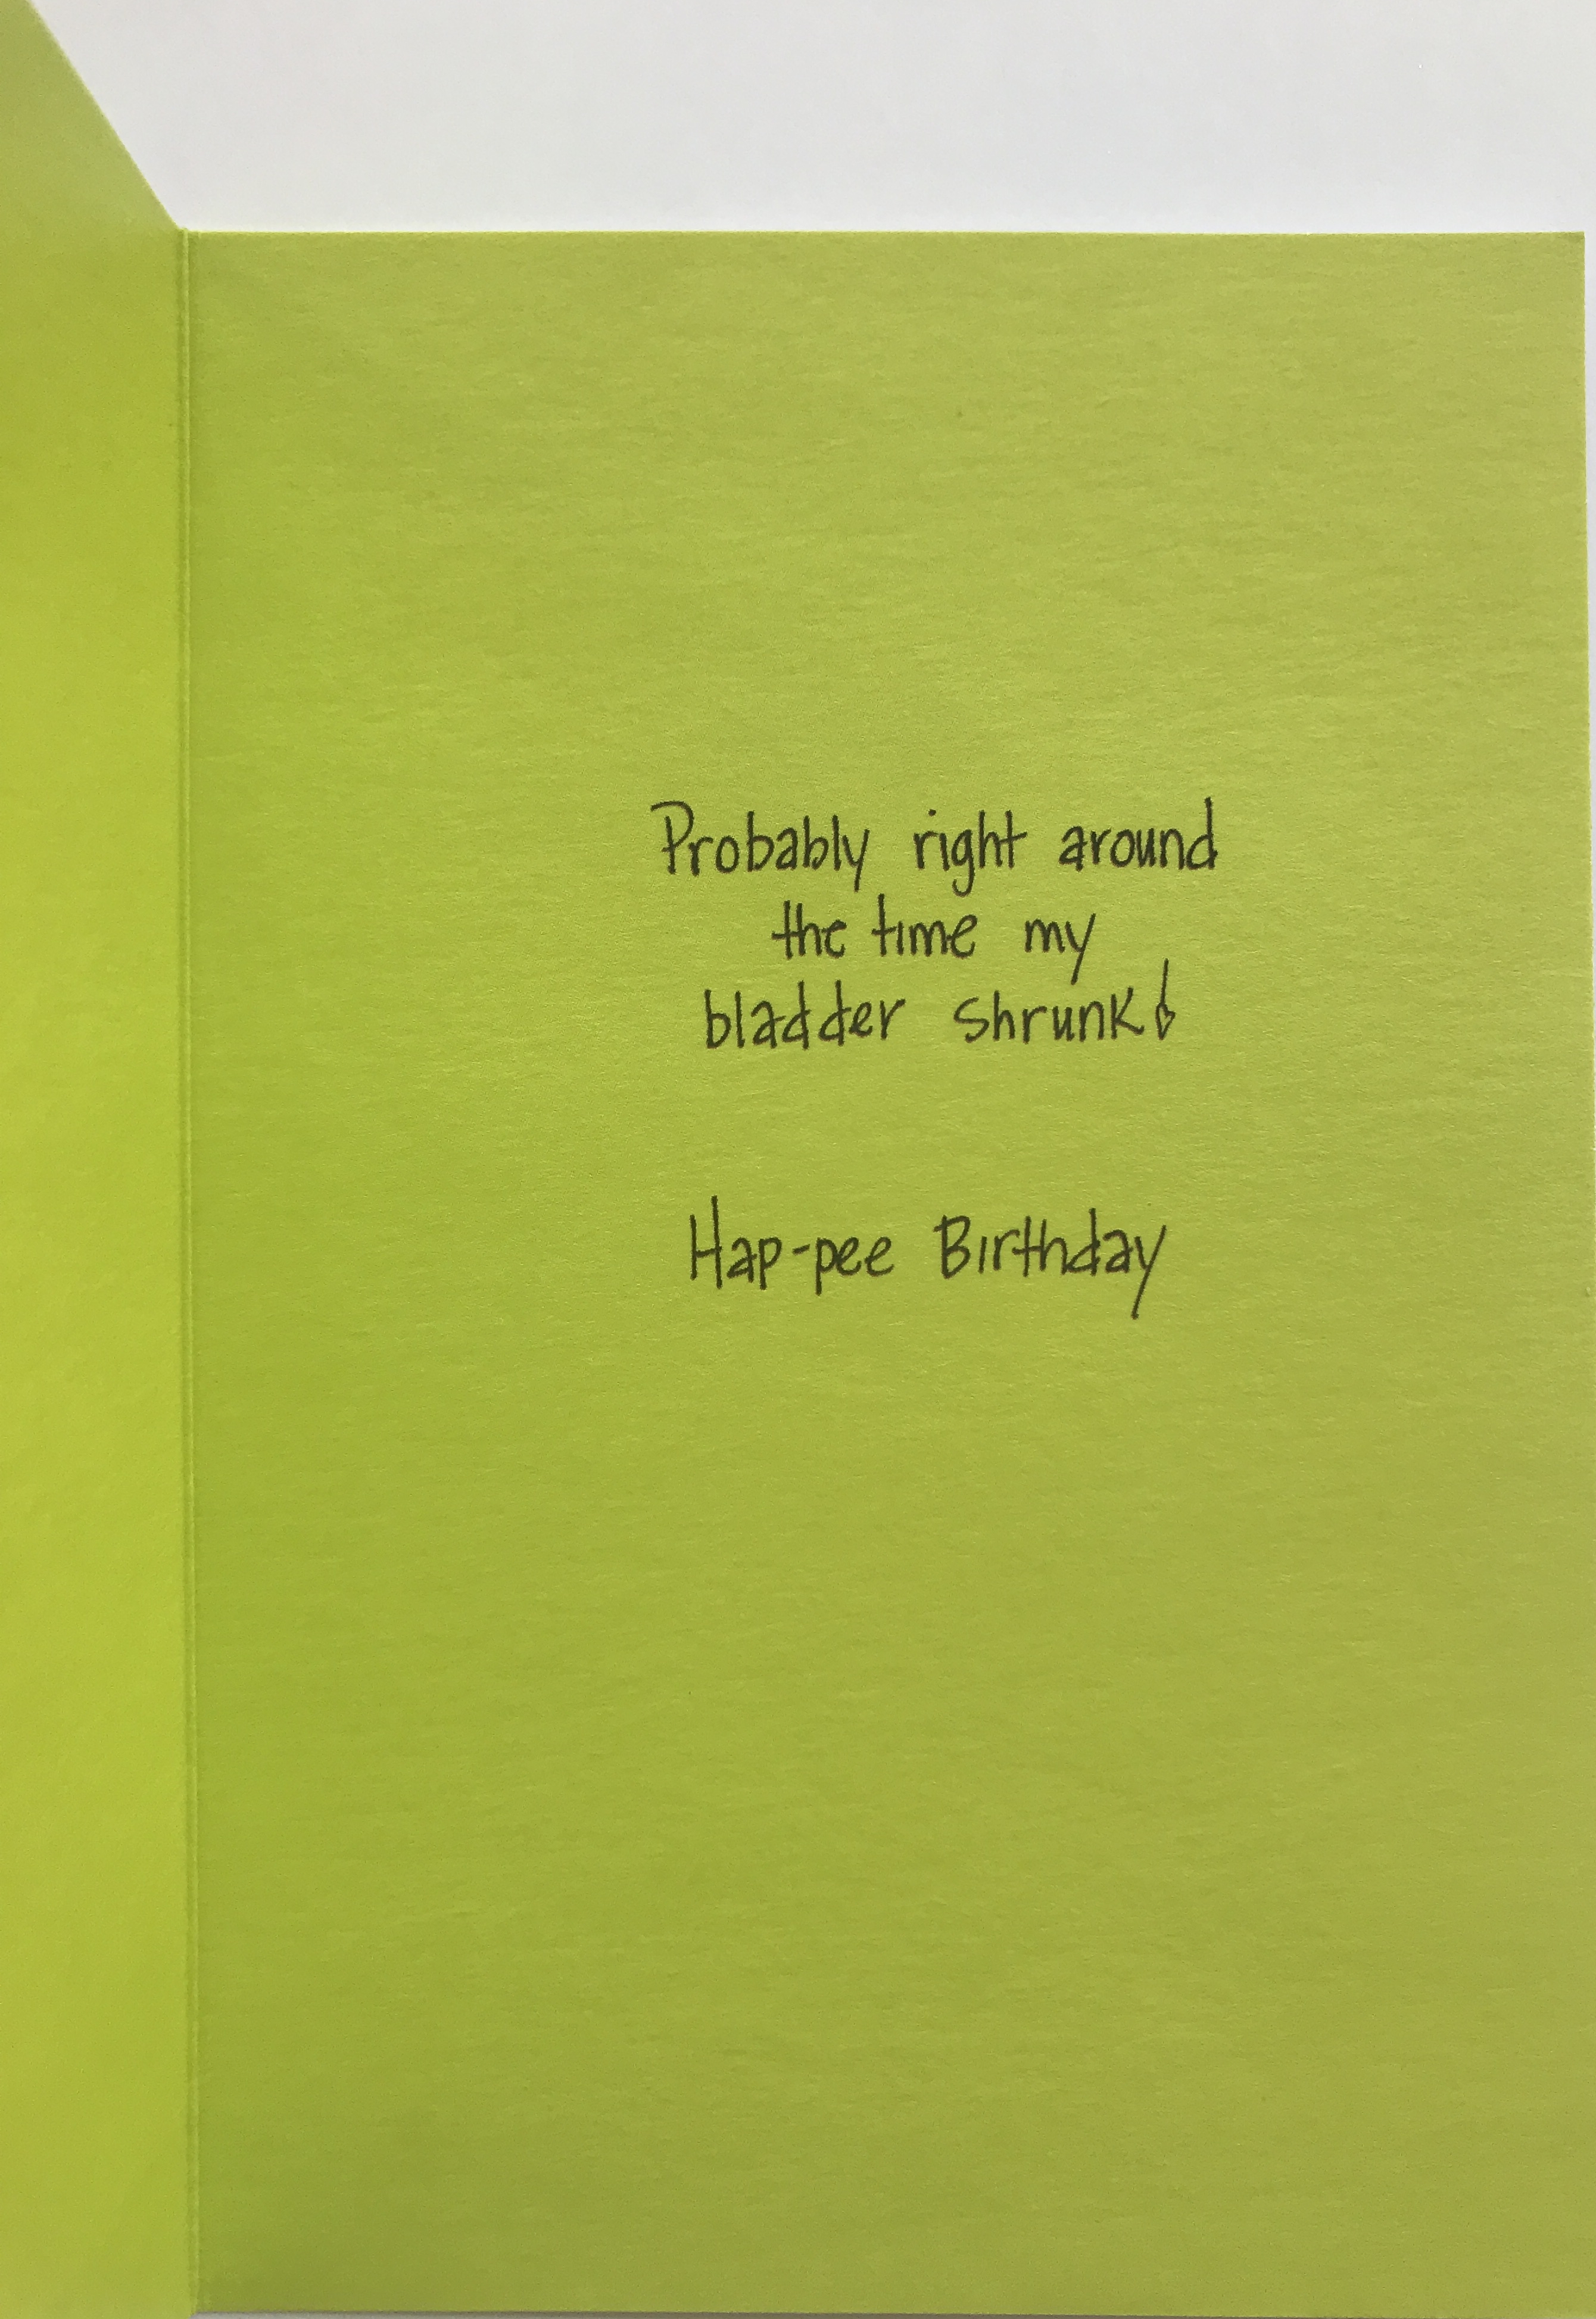 Probably right around
the time my
bladder shrunk!
Hap-pee Birthday